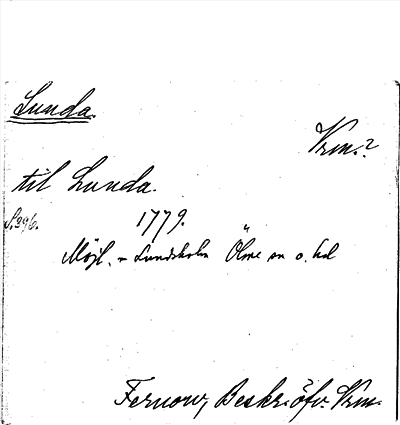 Lunda.
Vrm.?
til Lunda.
S. 296.
1779.
Möjl. = Lundsholm Ölme sn o. hd
Fernow, Beskr. öfv. Vrm.